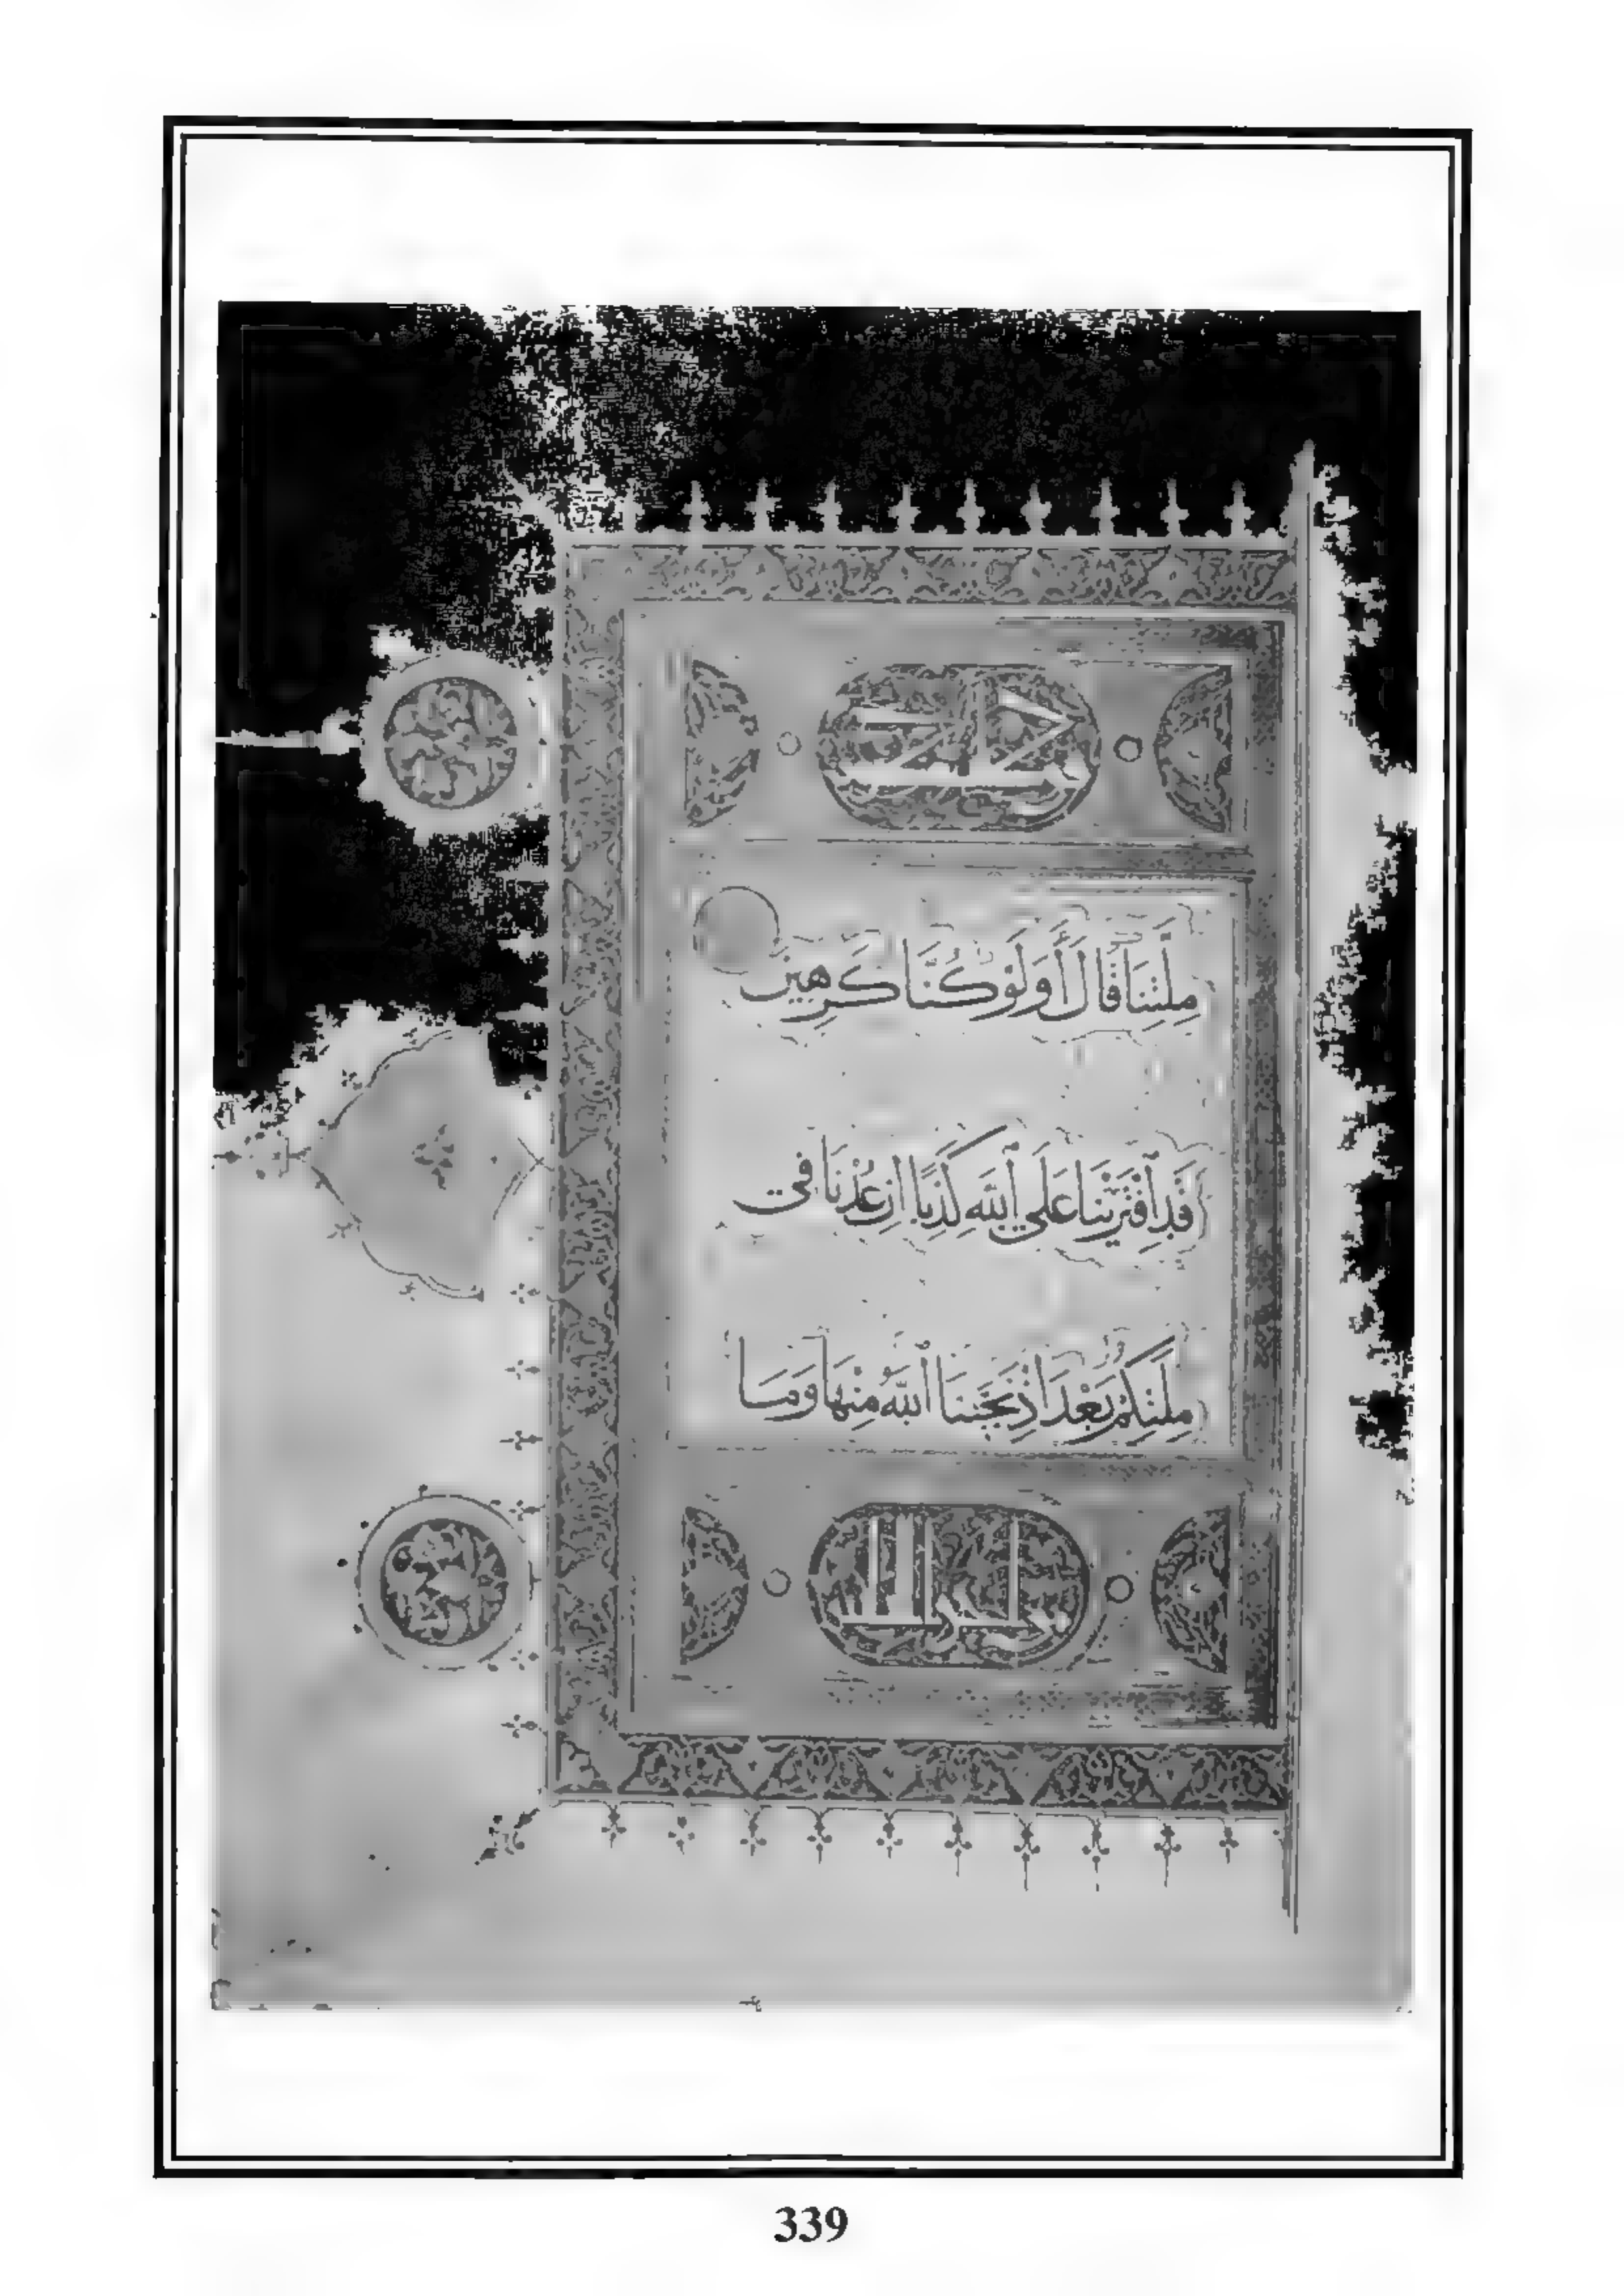 مِلَّتِنَا قَالَ أَوَلَوْ كُنَّا كَرِهِينَ
قَدِ ٱفْتَرَيْنَا عَلَى ٱللَّهِ كَذِبًا إِنْ عُدْنَا فِي
مِلَّتِكُمْ بَعْدَ إِذْ نَجَّىٰنَا ٱللَّهُ مِنْهَا وَمَا
339